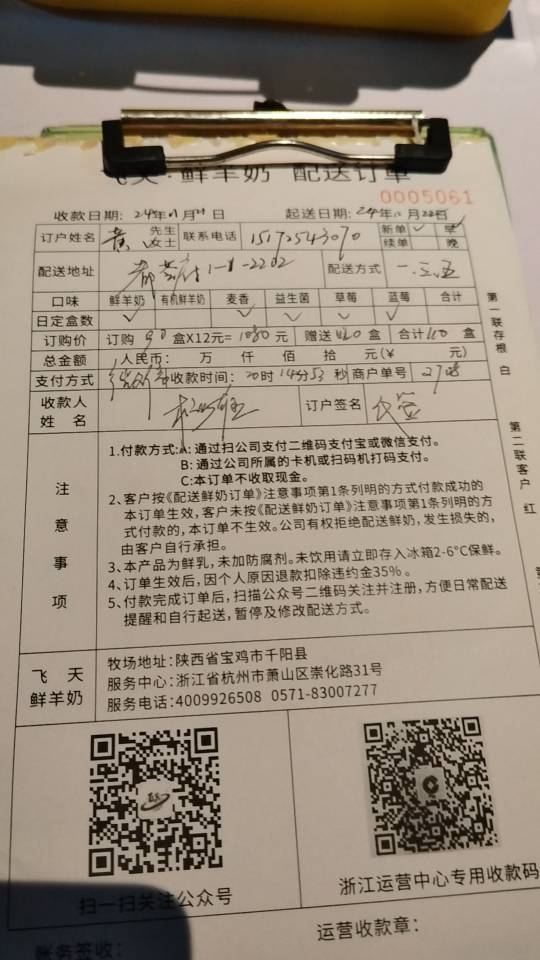 飞天·鲜羊奶 配送订单
0005061
收款日期: 24年11月21日 起送日期: 24年11月22日
订户姓名 黄 先生 女士 联系电话 15172543070 新单 ✓ 早 ✓
续单 晚
配送地址 1-1-2202 配送方式 一.三.五
口味 鲜羊奶 有机鲜羊奶 麦香 益生菌 草莓 蓝莓 合计
日定盒数 ✓ ✓ ✓ ✓ ✓
订购价 订购 90 盒X12元= 1080 元 赠送 20 盒 合计 110 盒
总金额 人民币: 万 仟 佰 拾 元(¥ 元)
支付方式 收款时间: 20时14分53秒 商户单号
收款人姓名 订户签名 代签
注意事项
1.付款方式:A: 通过扫公司支付二维码支付宝或微信支付。
B: 通过公司所属的卡机或扫码机打码支付。
C:本订单不收取现金。
2、客户按《配送鲜奶订单》注意事项第1条列明的方式付款成功的
本订单生效, 客户未按《配送鲜奶订单》注意事项第1条列明的方
式付款的, 本订单不生效。公司有权拒绝配送鲜奶, 发生损失的,
由客户自行承担。
3、本产品为鲜乳, 未加防腐剂。未饮用请立即存入冰箱2-6°C保鲜。
4、订单生效后, 因个人原因退款扣除违约金35%。
5、付款完成订单后, 扫描公众号二维码关注并注册, 方便日常配送
提醒和自行起送, 暂停及修改配送方式。
飞天鲜羊奶
牧场地址: 陕西省宝鸡市千阳县
服务中心: 浙江省杭州市萧山区崇化路31号
服务电话: 4009926508 0571-83007277
扫一扫关注公众号
浙江运营中心专用收款码
账务签收:
运营收款章:
第一联存根 白
第二联客户 红